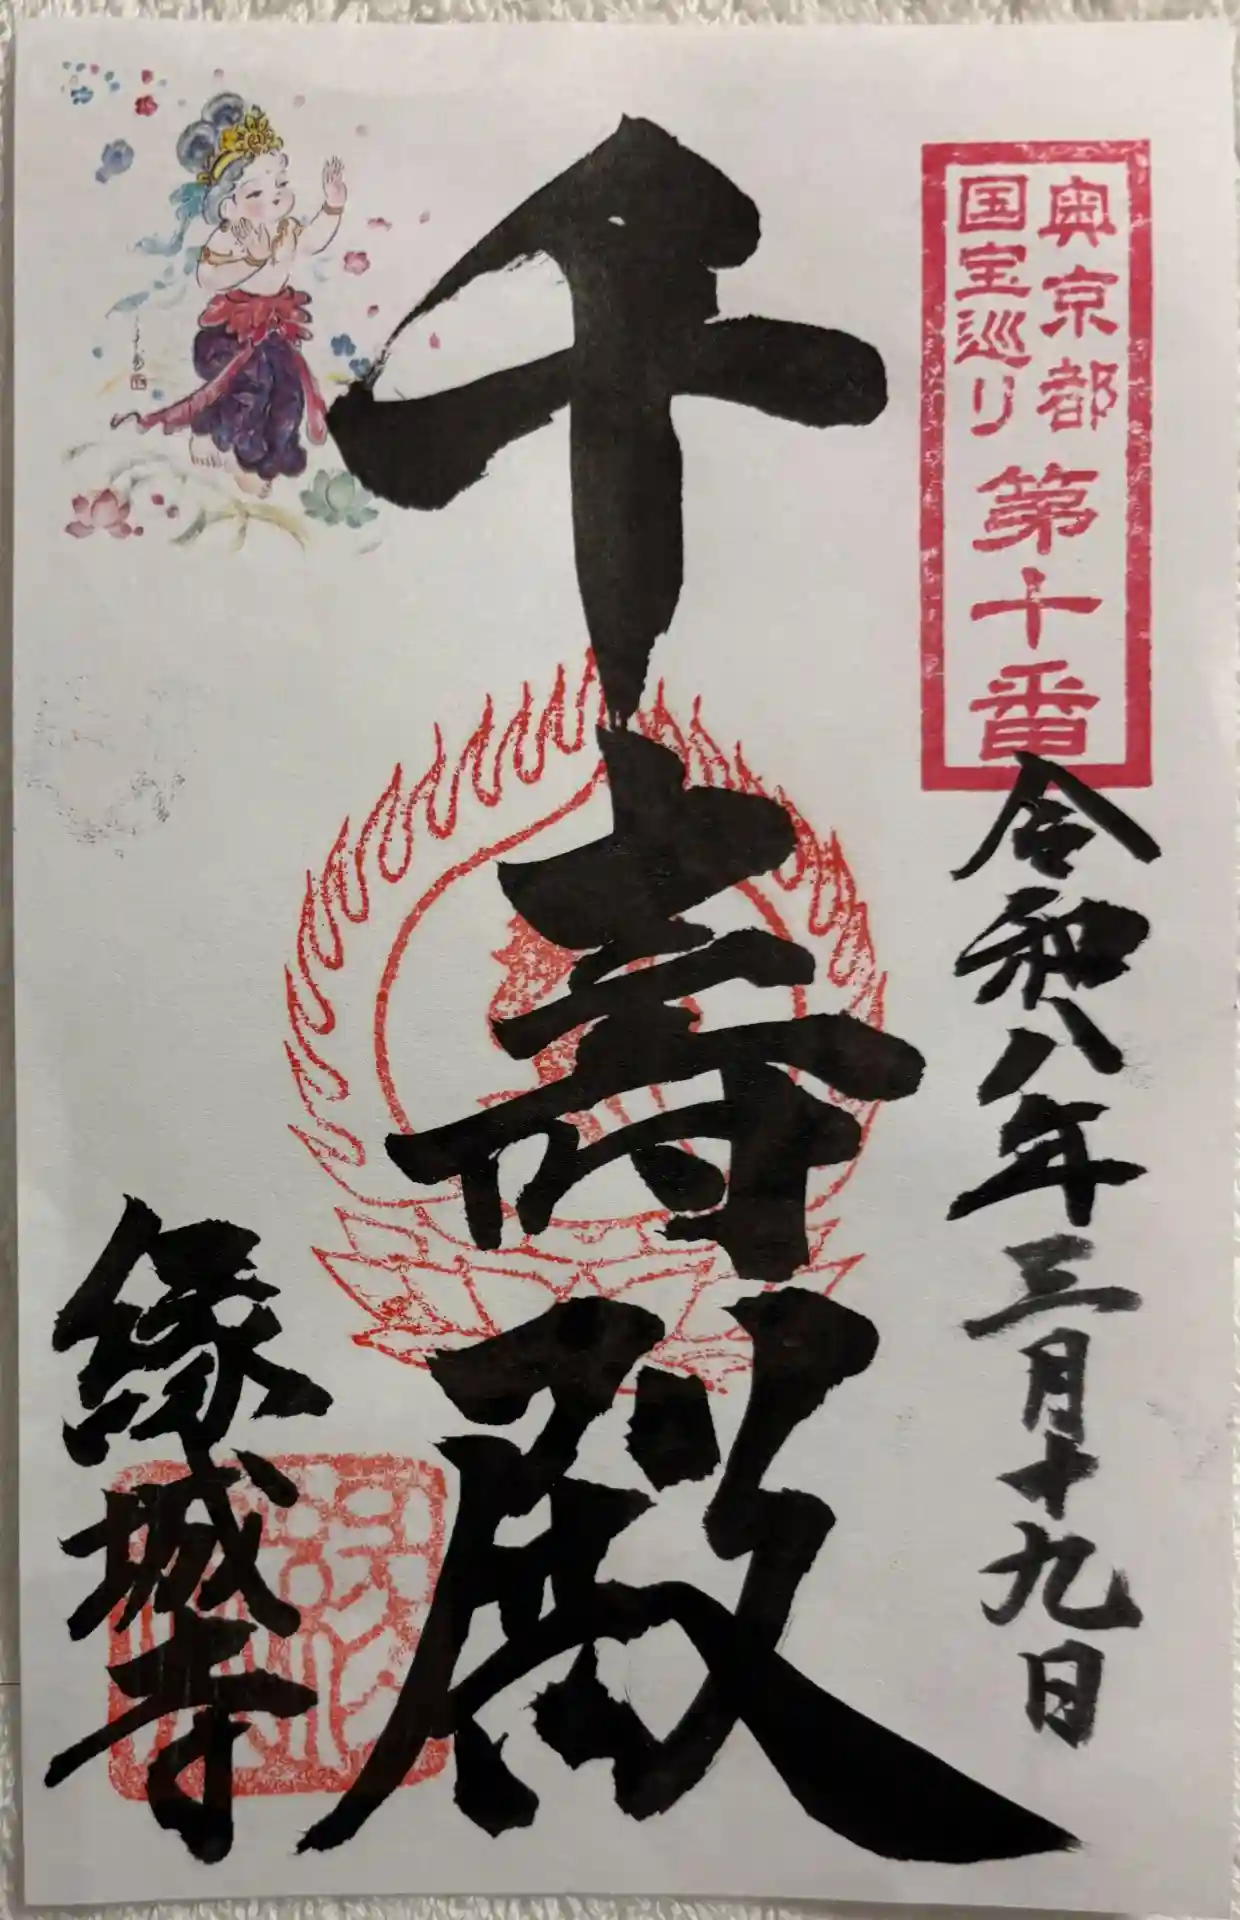 奥京都
国宝巡り
第十番
令和八年三月十九日
千寿殿
縁城寺